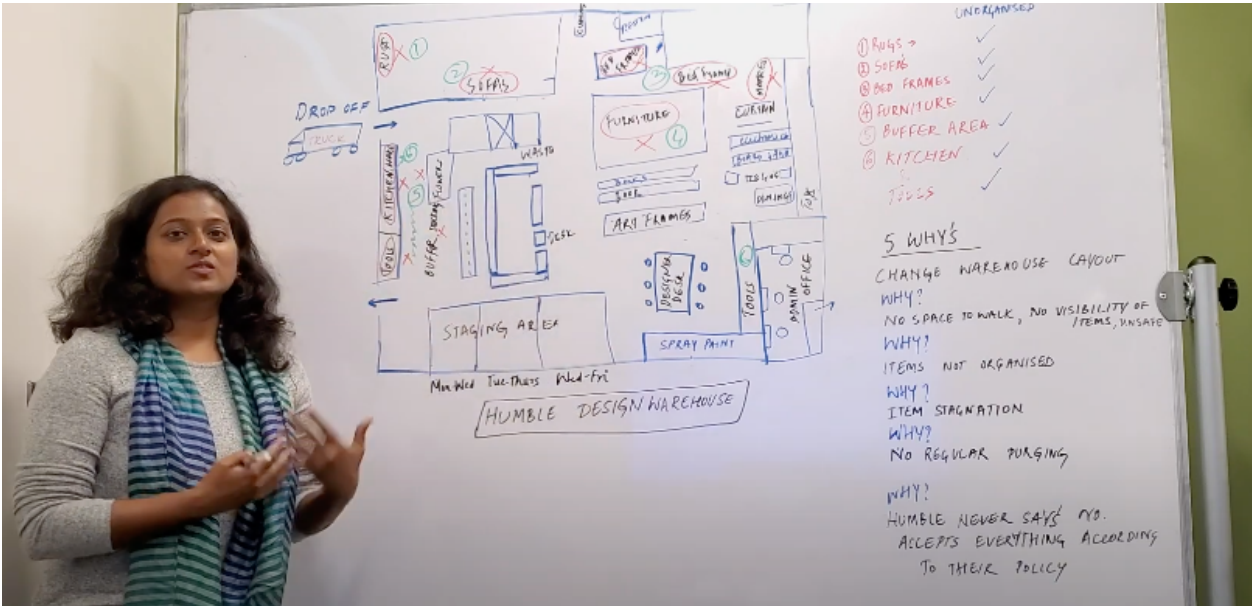 RUGS
①
②
SOFAS
BED FRAMES
③
BED FRAMES
DROP OFF
TRUCK
FURNITURE
④
CURTAIN
WASTE
KITCHENWARE
⑥
⑤
TOOLS
BUFFER
DESK
BOOKS
ART FRAMES
DESIGNER
DESK
TOOLS
⑥
ADMIN
OFFICE
STAGING AREA
SPRAY PAINT
Mon-Wed Tue-Thurs Wed-Fri
HUMBLE DESIGN WAREHOUSE
UNORGANISED
① RUGS
② SOFAS
③ BED FRAMES
④ FURNITURE
⑤ BUFFER AREA
⑥ KITCHEN
TOOLS
5 WHY'S
CHANGE WAREHOUSE LAYOUT
WHY?
NO SPACE TO WALK, NO VISIBILITY OF
ITEMS, UNSAFE
WHY?
ITEMS NOT ORGANISED
WHY?
ITEM STAGNATION
WHY?
NO REGULAR PURGING
WHY?
HUMBLE NEVER SAYS NO.
ACCEPTS EVERYTHING ACCORDING
TO THEIR POLICY